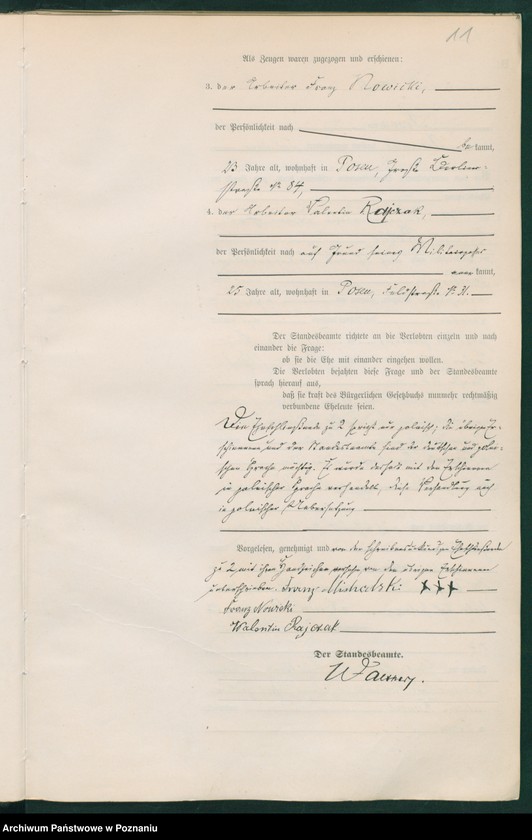 11
Als Zeugen waren zugezogen und erschienen:
3. der Arbeiter Franz Nowicki,
der Persönlichkeit nach
be kannt,
23 Jahre alt, wohnhaft in Posen, Große Berliner-
straße № 84,
4. der Arbeiter Valentin Rajczak,
der Persönlichkeit nach auf Grund seines Militärpasses
aner kannt,
25 Jahre alt, wohnhaft in Posen, Feldstraße № 31.
Der Standesbeamte richtete an die Verlobten einzeln und nach
einander die Frage:
ob sie die Ehe mit einander eingehen wollen.
Die Verlobten bejahten diese Frage und der Standesbeamte
sprach hierauf aus,
daß sie kraft des Bürgerlichen Gesetzbuchs nunmehr rechtmäßig
verbundene Eheleute seien.
zu 2 spricht nur polnisch; die übrigen Er-
schienenen und der Standesbeamte sind der deutschen und polni-
schen Sprache mächtig. Es wurde deshalb mit den Erschienenen
in polnischer Sprache verhandelt, diese Verhandlung auch
in polnischer Uebersetzung
Vorgelesen, genehmigt und von der
zu 2 mit ihren Handzeichen von den übrigen Erschienenen
unterschrieben. Franz +++
Franz Nowicki
Walentin Rajczak
Der Standesbeamte.
Archiwum Państwowe w Poznaniu